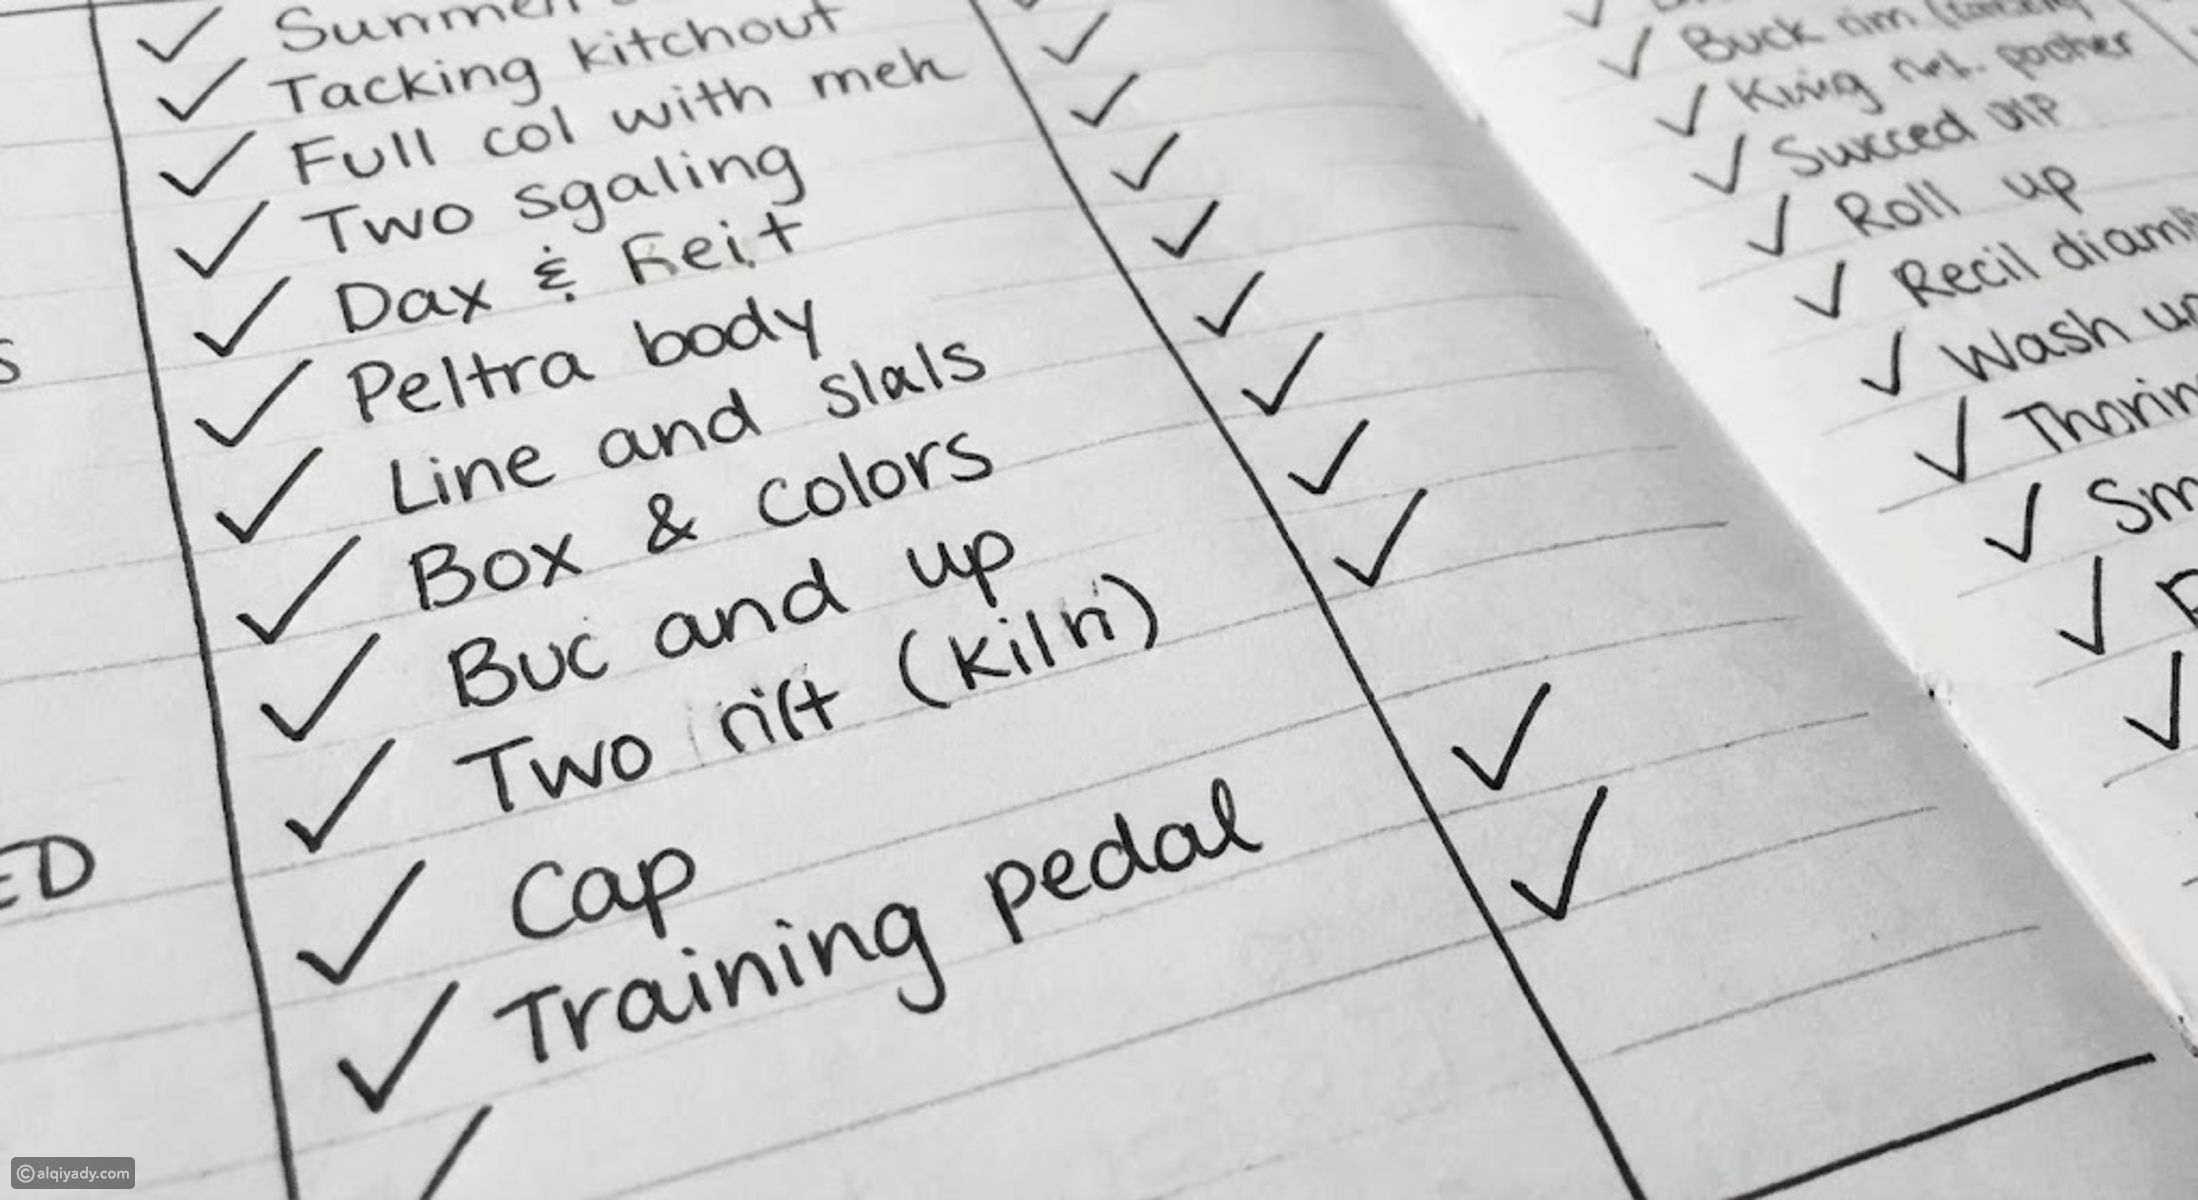 Summer
Tacking kitchout
Full col with meh
Two sgaling
Dax & Reit
Peltra body
Line and slals
Box & colors
Buc and up
Two rift (kiln)
Cap
Training pedal
S
ED
Buck rim
King net. pocher
Succed VIP
Roll up
Recil diaml
Wash up
Thorin
Sm
©alqiyady.com